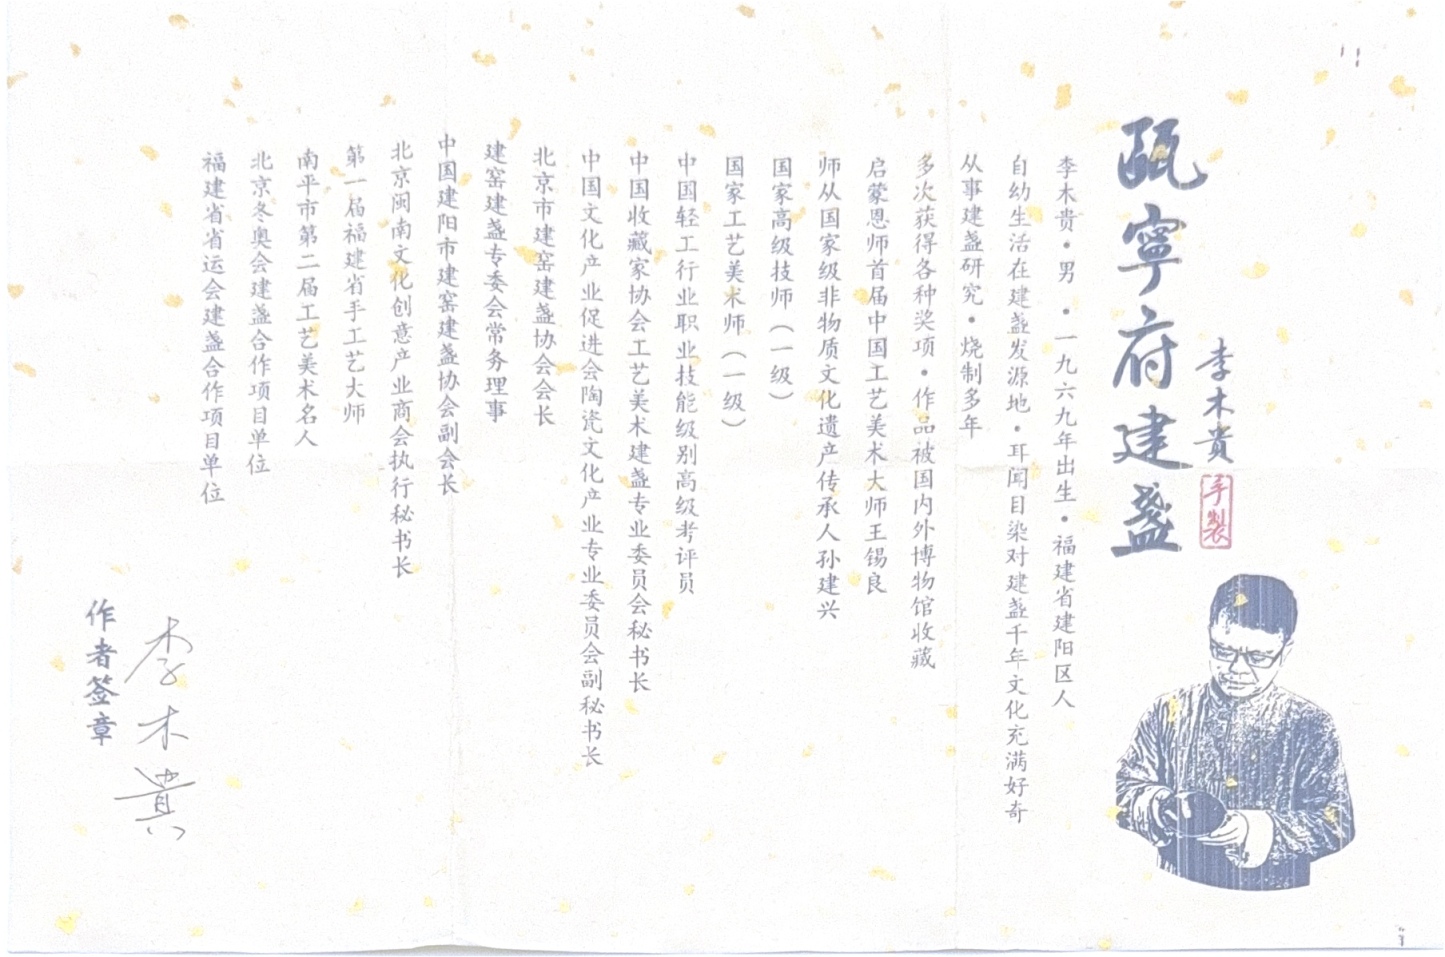 瓯寧府建盏
李木貴
手製
李木贵·男·一九六九年出生·福建省建阳区人
自幼生活在建盏发源地·耳闻目染对建盏千年文化充满好奇
从事建盏研究·烧制多年
多次获得各种奖项·作品被国内外博物馆收藏
启蒙恩师首届中国工艺美术大师王锡良
师从国家级非物质文化遗产传承人孙建兴
国家高级技师（一级）
国家工艺美术师（一级）
中国轻工行业职业技能级别高级考评员
中国收藏家协会工艺美术建盏专业委员会秘书长
中国文化产业促进会陶瓷文化产业专业委员会副秘书长
北京市建窑建盏协会会长
建窑建盏专委会常务理事
中国建阳市建窑建盏协会副会长
北京闽南文化创意产业商会执行秘书长
第一届福建省手工艺大师
南平市第二届工艺美术名人
北京冬奥会建盏合作项目单位
福建省省运会建盏合作项目单位
李木貴
作者签章